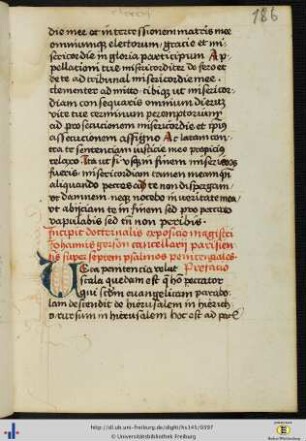 186
die mee et intercessionem matris mee
omniumque electorum / gracie et mi
sericordie in gloria participium Ap
pellationi tue misericorditer defero et
de te ad tribunal misericordie mee
clementer admitto tibique ut misericor
diam consequaris omnium dierum
vite tue terminum peremptorium
ad prosecucionem misericordie et ipius
assecucionem assigno Ac latam con
tra te sententiam iusticie mee propicius
relaxo Ita ut si usque in finem
fueris misericordiam tamen meam
aliquando pecces ad te non dispergam
ut damnem neque
abiiciam te in finem sed pro peccato
vapulabis sed non peribis
Incipit doctrinalis exposicio magistri
Johannis gerson cancellarii parisien
sis super septem psalmos penitenciales
Vera penitencia velut Prefacio
scala quedam est qua homo peccator
qui scdm evangelicam parabo
lam descendit de hierusalem in hierich
rursum in hierusalem hoc est ad
http://dl.ub.uni-freiburg.de/diglit/hs145/0397
© Universitätsbibliothek Freiburg